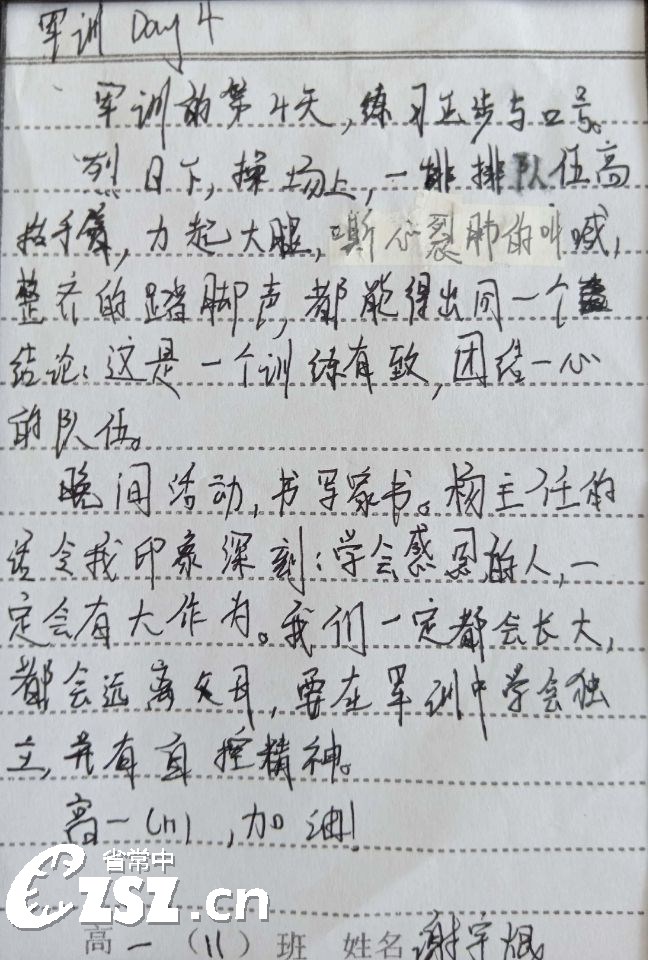 军训 Day 4
军训的第4天，练习正步与口号。
烈日下，操场上，一排排队伍高
抬手臂，力起大腿，嘶心裂肺的叫喊，
整齐的踏脚声，都能得出同一个
结论：这是一个训练有致，团结一心
的队伍。
晚间活动，书写家书。杨主任的
话令我印象深刻：学会感恩的人，一
定会有大作为。我们一定都会长大，
都会远离父母，要在军训中学会独
立，并有自控精神。
高一(11)，加油！
省常中
CZSZ.cn
高一（11）班 姓名 谢宇